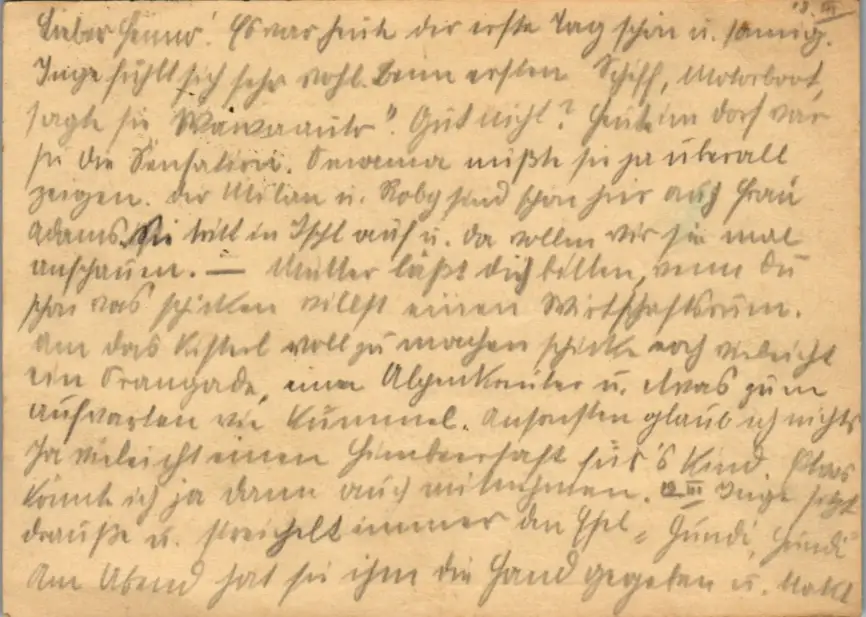 18. III
Lieber Henno! Es war heute der erste Tag schön u. sonnig.
Inge fühlt sich sehr wohl. Beim ersten Schiff, Motorboot,
sagte sie "Wawaauto". Gut nicht? Heute im Dorf war
sie die Sensation. Omama mußte sie ja überall
zeigen. Der Milan u. Roby sind schon hier auch Frau
Adams. Sie tritt in Ischl auf u. da wollen wir sie mal
anschauen. — Mutter läßt dich bitten, wenn du
schon was schicken willst einen Wirtschaftsrum.
Um das Kisterl voll zu machen schicke noch vieleicht
ein Orangade, einen Alpenkräuter u. etwas zum
aufwarten wie Kümmel. Ansonsten glaub ich nichts
Ja vieleicht einen Himbeersaft für's Kind. Etwas
könnte ich ja dann auch mitnehmen. 19 III Inge sitzt
drauße u. streichelt immer den Esel = Hundi, Hundi
Am Abend hat sie ihm die Hand gegeben u.